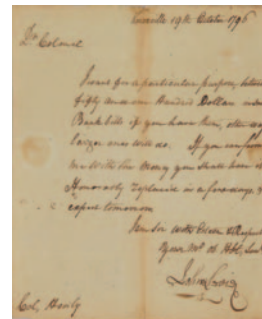 Knoxville 19th October 1796
Dr Colonel
I want for a particular purpose, between
fifty and one Hundred Dollars in
Bank bills if you have them, other
larger ones will do. If you can
me with the money you shall have it
Honorably replaced in a few days
expect tomorrow
I am Sir with Esteem & Respect
Your Mo. Ob. Hbl. Servt
John Sevier
Col. Henly